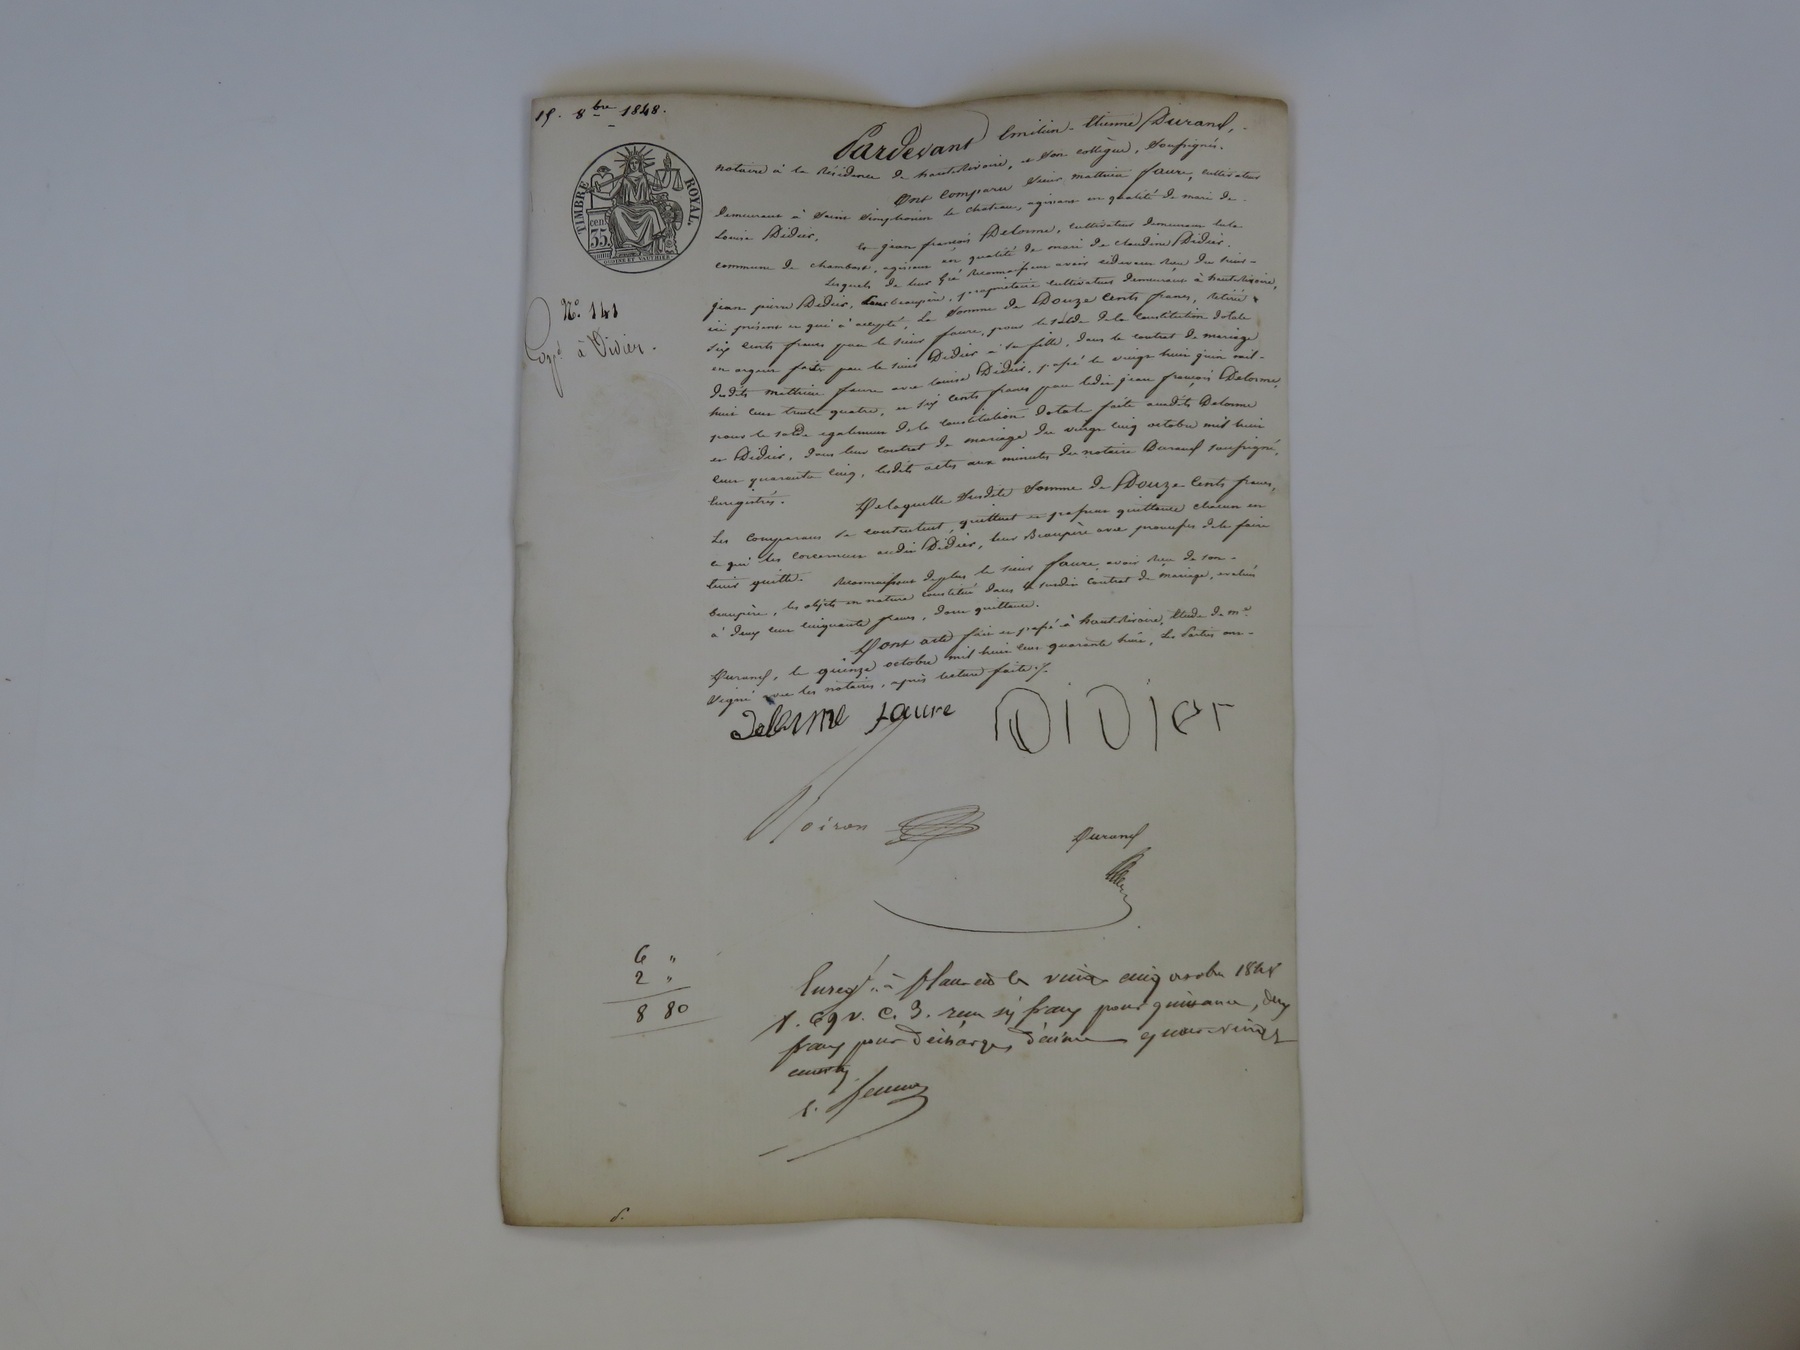 15. 8bre 1848.
TIMBRE ROYAL.
cent. 35.
N.o 141
à Didier.
Pardevant Emilien-Etienne Durand,
notaire à la Résidence de hauterivoire, et Son collègue, Soussignés.
Ont comparu Sieur mathieu faure, cultivateur
demeurant à Saint Simphorien le chateau, agissant en qualité de mari de
Louise Didier,
et jean françois Delorme, cultivateur demeurant en la
commune de chambost, agissant en qualité de mari de claudine Didier.
Lesquels de leur Gré Reconnaissent avoir cidevant Reçu du sieur
jean pierre Didier, leur beaupère, propriétaire cultivateur demeurant à hauterivoire,
ici présent et qui a accepté, La Somme de Douze Cents francs,
Six Cents francs par le sieur faure, pour le solde de la Constitution dotale
en argent faite par le sieur Didier à sa fille, dans le contrat de mariage
dudit mathieu faure avec louise Didier, passé le vingt huit juin mil
huit cent trente quatre, et six cents francs par ledit jean françois Delorme,
pour le solde également de la Constitution dotale faite audits Delorme
et Didier, dans leur Contrat de mariage du vingt cinq octobre mil huit
cent quarante cinq, lesdits actes aux minutes du notaire Durand soussigné,
Enregistrés.
De laquelle Susdite Somme de Douze Cents francs,
Les Comparants se contentent, quittent et passent quittance chacun en
ce qui les concerne audit Didier, leur Beaupère avec promesse de le faire
tenir quitte. Reconnaissant de plus, le sieur faure, avoir Reçu de son
beaupère, les objets en nature constitué dans le susdit Contrat de mariage, évalués
à deux cent cinquante francs, dont quittance.
Dont acte fait et passé à hauterivoire, Etude de me
Durand, le quinze octobre mil huit cent quarante huit, Les Parties ont
Signé avec les notaires, après lecture faite ./.
delorme faure Didier
Noiron
Durand
6 "
2 "
8 80
Enregé à le vingt cinq octobre 1848
f. 69 v. C. 3. reçu six francs pour quittance, deux
francs pour décharge, décime quatre-vingt
centes